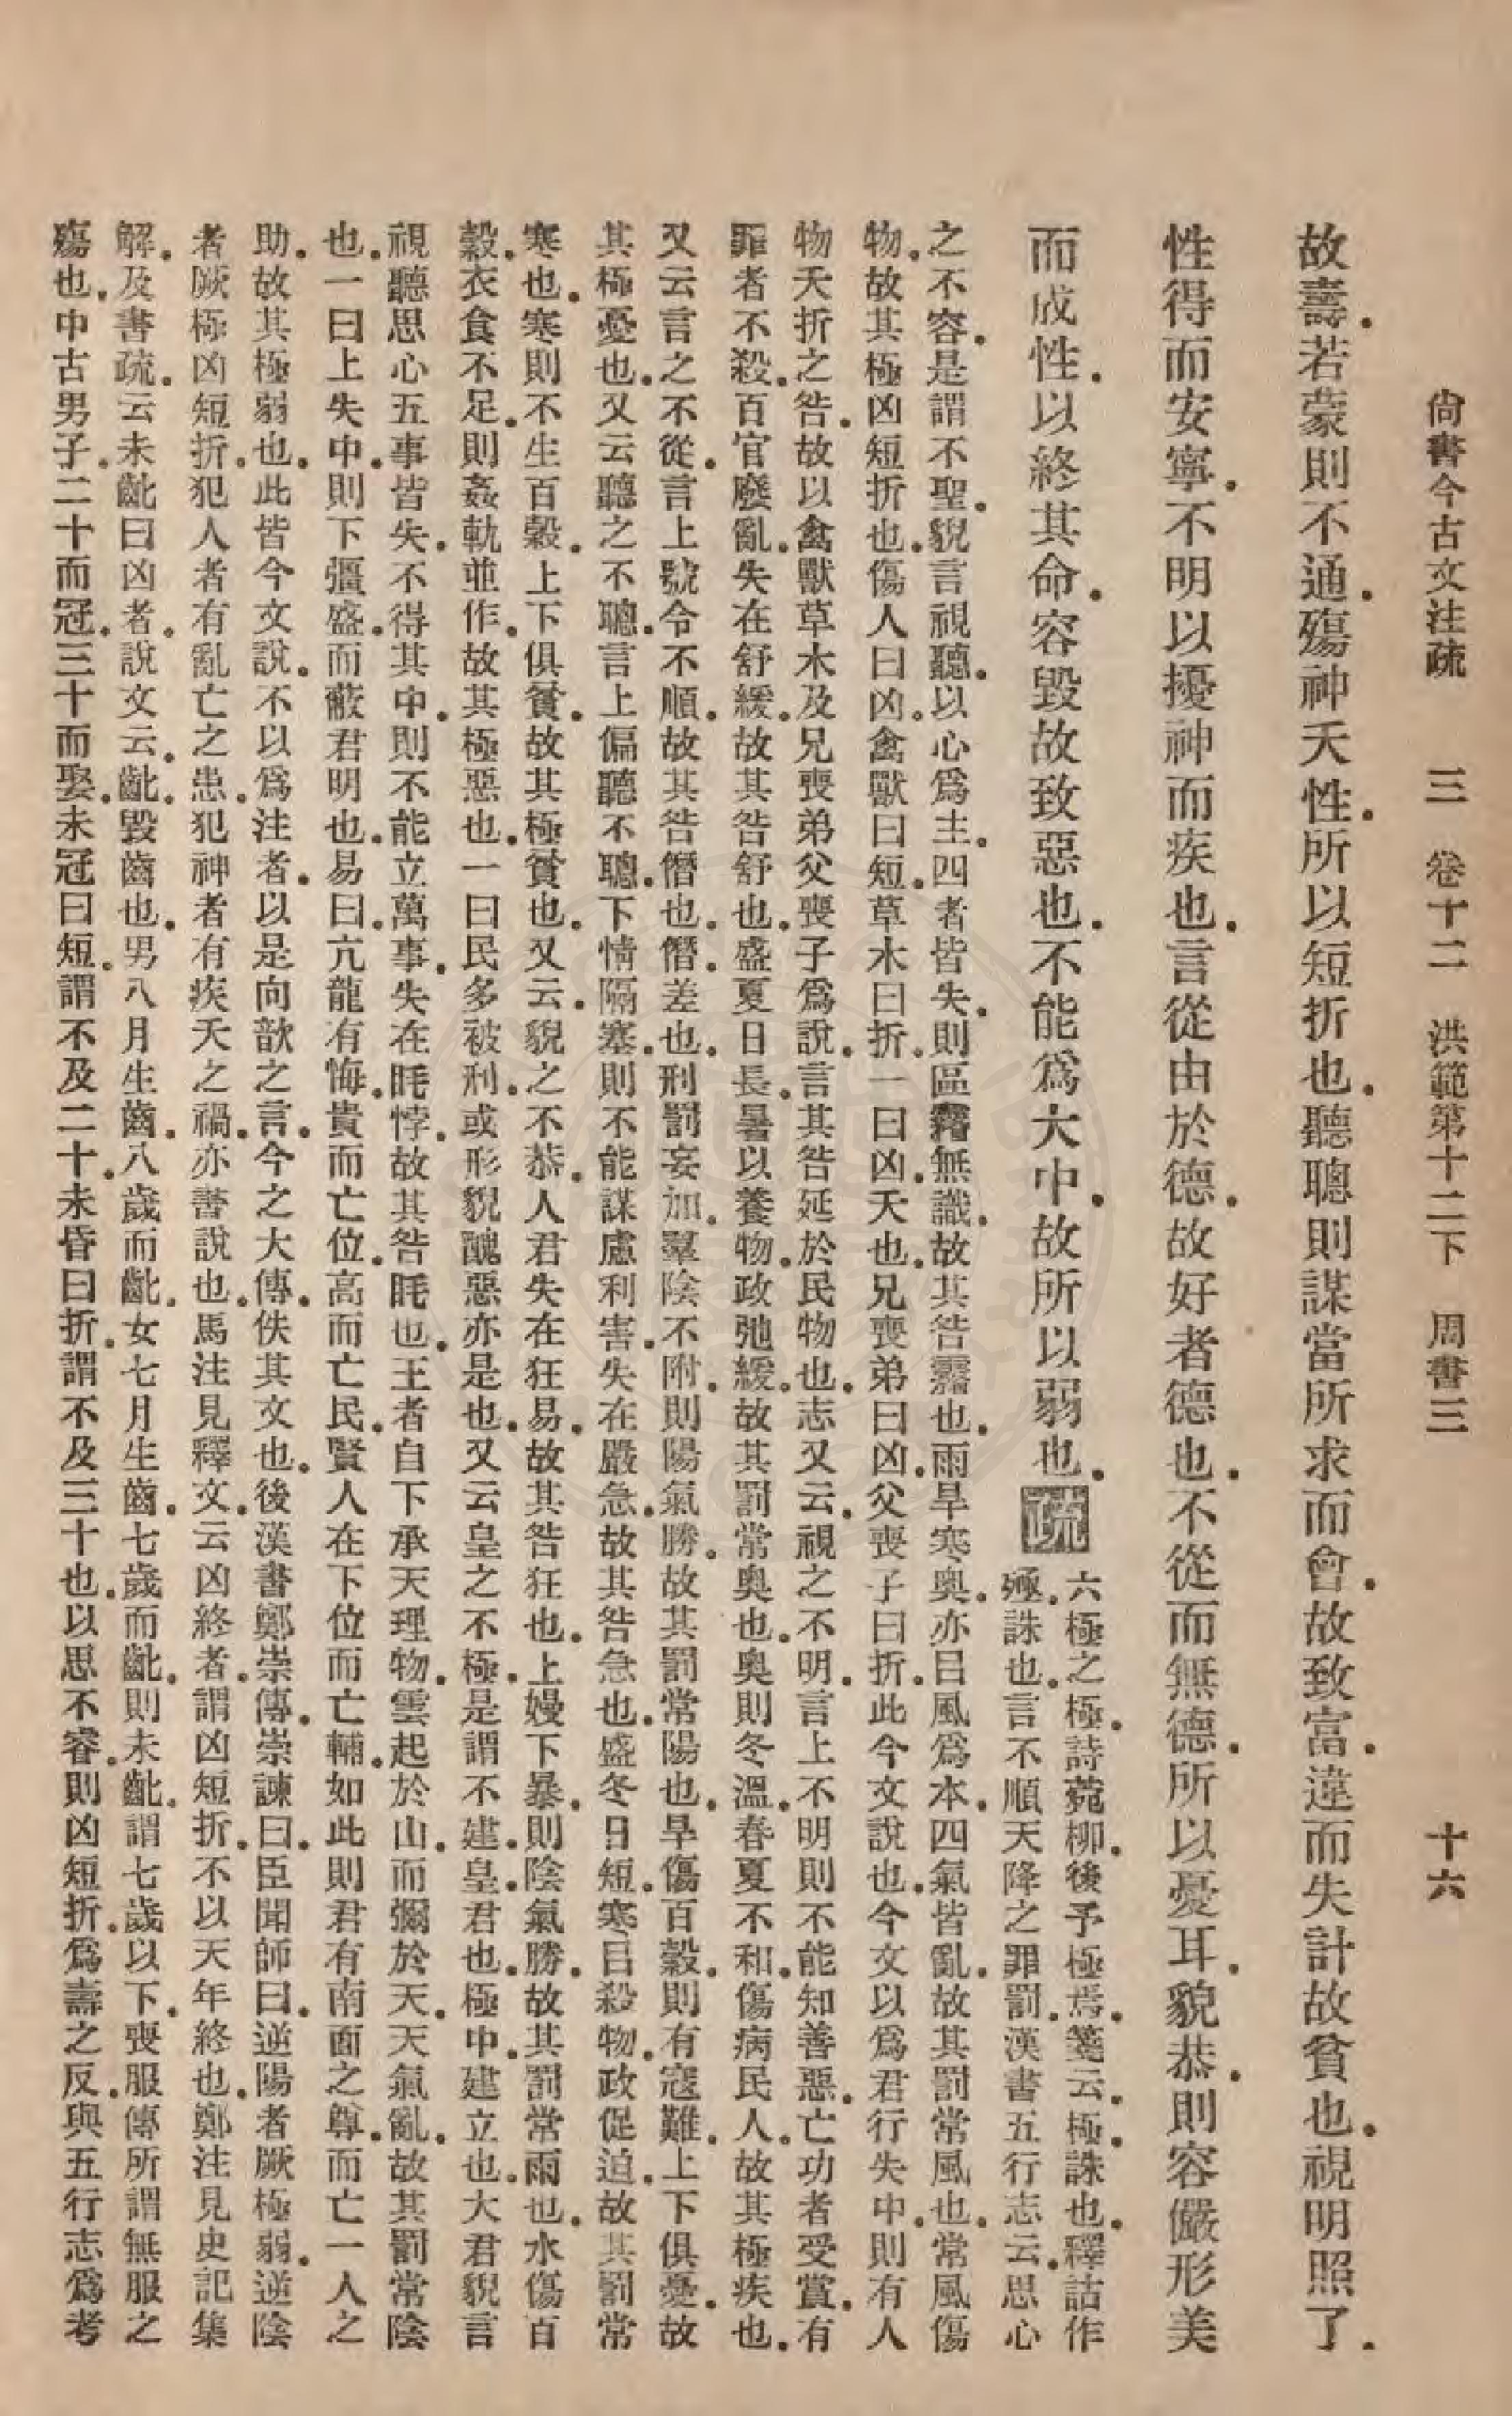 尙書今古文注疏　三　卷十二　洪範第十二下　周書三　十六
故壽．若蒙則不通．殤神夭性．所以短折也．聽聰則謀當所求而會．故致富．違而失計故貧也．視明照了．
性得而安寧．不明以擾神而疾也．言從由於德．故好者德也．不從而無德．所以憂耳．貌恭．則容儼形美
而成性．以終其命．容毀故致惡也．不能爲大中．故所以弱也．疏
六極之極．詩菀柳．後予極焉．箋云．極．誅也．釋詁作
殛．誅也．言不順天降之罪罰．漢書五行志云．思心
之不容．是謂不聖．貌言視聽．以心爲主．四者皆失．則區霿無識．故其咎霿也．雨旱寒奧．亦㠯風爲本．四氣皆亂．故其罰常風也．常風傷
物．故其極凶短折也．傷人曰凶．禽獸曰短．草木曰折．一曰凶．夭也．兄喪弟曰凶．父喪子曰折．此今文說也．今文以爲君行失中．則有人
物夭折之咎．故以禽獸草木及兄喪弟父喪子爲說．言其咎延於民物也．志又云．視之不明．言上不明則不能知善惡．亡功者受賞．有
罪者不殺．百官廢亂．失在舒緩．故其咎舒也．盛夏日長．暑以養物．政弛緩．故其罰常奧也．奧則冬溫．春夏不和．傷病民人．故其極疾也．
又云言之不從．言上號令不順．故其咎僭也．僭．差也．刑罰妄加．羣陰不附．則陽氣勝．故其罰常陽也．旱傷百穀．則有寇難．上下俱憂．故
其極憂也．又云聽之不聰．言上偏聽不聰．下情隔塞．則不能謀慮利害．失在嚴急．故其咎急也．盛冬日短．寒㠯殺物．政促迫．故其罰常
寒也．寒則不生百穀．上下俱貧．故其極貧也．又云．貌之不恭．人君失在狂易．故其咎狂也．上嫚下暴．則陰氣勝．故其罰常雨也．水傷百
穀．衣食不足．則姦軌並作．故其極惡也．一曰民多被刑．或形貌醜惡亦是也．又云皇之不極．是謂不建．皇．君也．極中．建立也．大君貌言
視聽思心五事皆失．不得其中．則不能立萬事．失在眊悖．故其咎眊也．王者自下承天理物．雲起於山．而彌於天．天氣亂．故其罰常陰
也．一曰上失中．則下彊盛．而蔽君明也．易曰．亢龍有悔．貴而亡位．高而亡民．賢人在下位而亡輔．如此則君有南面之尊．而亡一人之
助．故其極弱也．此皆今文說．不以爲注者．以是向歆之言．今之大傳．佚其文也．後漢書鄭崇傳．崇諫曰．臣聞師曰．逆陽者厥極弱．逆陰
者厥極凶短折．犯人者有亂亡之患．犯神者有疾夭之禍．亦書說也．馬注見釋文．云凶終者．謂凶短折．不以天年終也．鄭注見史記集
解．及書疏．云未齔曰凶者．說文云．齔．毀齒也．男八月生齒．八歲而齔．女七月生齒．七歲而齔．則未齔．謂七歲以下．喪服傳所謂無服之
殤也．中古男子．二十而冠．三十而娶．未冠曰短．謂不及二十．未昏曰折．謂不及三十也．以思不睿．則凶短折．爲壽之反．與五行志爲考